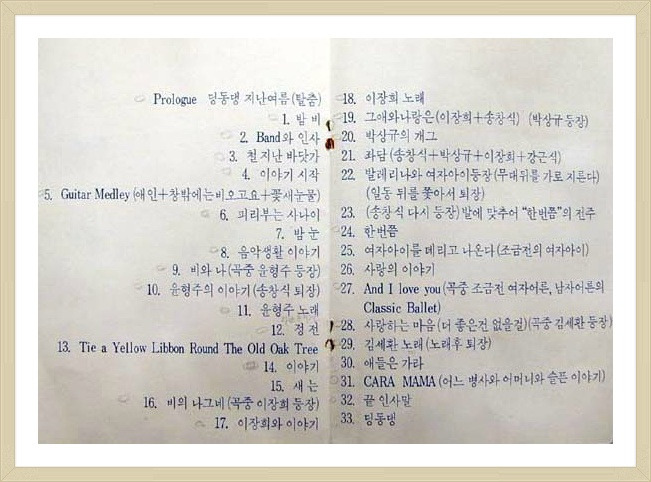 Prologue 딩동댕 지난여름(탈춤)
1. 밤 비
2. Band와 인사
3. 철 지난 바닷가
4. 이야기 시작
5. Guitar Medley(애인+창밖에는비오고요+꽃새눈물)
6. 피리부는 사나이
7. 밤 눈
8. 음악생활 이야기
9. 비와 나(곡중 윤형주 등장)
10. 윤형주의 이야기(송창식 퇴장)
11. 윤형주 노래
12. 정 전
13. Tie a Yellow Libbon Round The Old Oak Tree
14. 이야기
15. 새 는
16. 비의 나그네(곡중 이장희 등장)
17. 이장희와 이야기
18. 이장희 노래
19. 그애와나랑은(이장희+송창식) (박상규등장)
20. 박상규의 개그
21. 좌담(송창식+박상규+이장희+강근식)
22. 발레리나와 여자아이등장(무대뒤를 가로 지른다)
(일동 뒤를 쫓아서 퇴장)
23. (송창식 다시 등장)발에 맞추어 "한번쯤"의 전주
24. 한번쯤
25. 여자아이를 데리고 나온다(조금전의 여자아이)
26. 사랑의 이야기
27. And I love you(곡중 조금전 여자어른, 남자어른의
Classic Ballet)
28. 사랑하는 마음(더 좋은건 없을걸)(곡중 김세환 등장)
29. 김세환 노래(노래후 퇴장)
30. 애들은 가라
31. CARA MAMA(어느 병사와 어머니와 슬픈 이야기)
32. 끝 인사말
33. 딩동댕